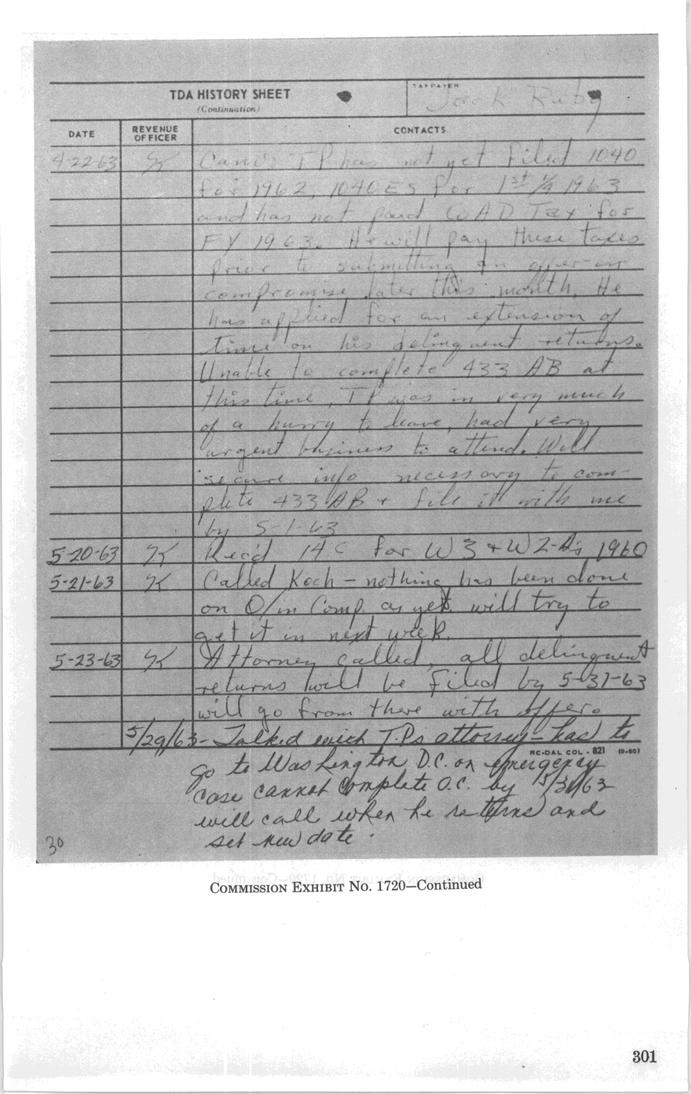 TDA HISTORY SHEET
(Continuation)
TAXPAYER
Jack Ruby
DATE
REVENUE OFFICER
CONTACTS
4-22-63 Cano's TP has not yet filed 1040
for 1962, 1040ES for 1st 1/4 1963
and has not paid CAD Tax for
FY 1963. He will pay these taxes
prior to submitting an offer-in-
compromise later this month. He
has applied for an extension of
time on his delinquent returns.
Unable to complete 433 AB at
this time, TP was in very much
of a hurry to leave, had very
urgent business to attend. Will
secure info necessary to com-
plete 433 AB + file it with me
by 5-1-63
5-20-63 K Rec'd 14C for W3 + W2-A's 1960
5-21-63 K Called Koch - nothing has been done
on O/in Comp. as yet, will try to
get it in next week.
5-23-63 K Attorney called, all delinquent
returns will be filed by 5-31-63
will go from there with offer.
5/29/63 - Talked with T.Ps attorney - had to
RC-DAL COL - 821 (9-60)
go to Washington D.C. on emergency
case cannot complete O.C. by 5/31/63
will call when he returns and
set new date.
30
COMMISSION EXHIBIT NO. 1720—Continued
301